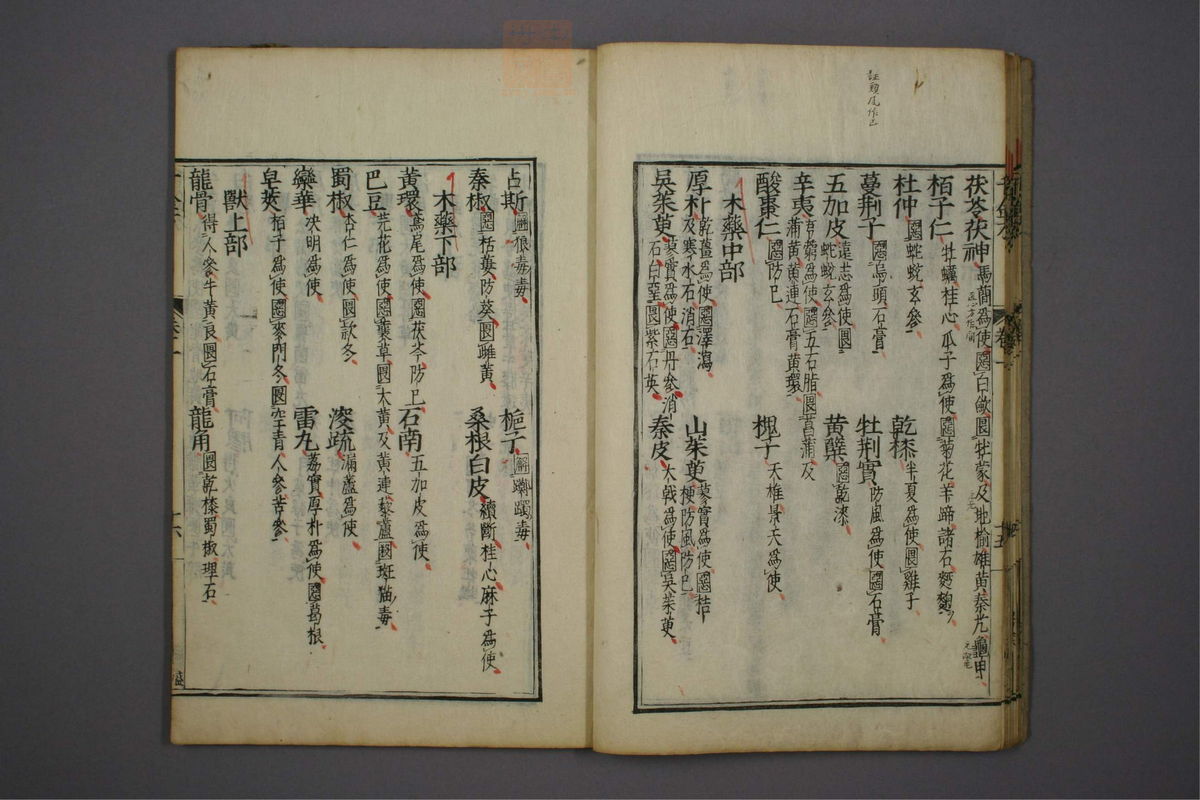 茯苓茯神馬藺爲使惡白斂畏牡蒙及地榆雄黃秦艽龜甲
栢子仁牡蠣桂心瓜子爲使惡菊花羊蹄諸石麵麴
杜仲惡蛇蛻玄參 乾漆半夏爲使畏雞子
蔓荆子惡烏頭石膏 牡荆實防風爲使惡石膏
五加皮遠志爲使畏蛇蛻玄參 黃蘗惡乾漆
辛夷芎藭爲使惡五石脂畏菖蒲及蒲黃黃連石膏黃環
酸棗仁惡防已 槐子天雄景天爲使
木藥中部
厚朴乾薑爲使惡澤瀉及寒水石消石 山茱萸蓼實爲使惡桔梗防風防已
吳茱萸蓼實爲使惡丹參消石白堊畏紫石英 秦皮大戟爲使惡吳茱萸
占斯解狼毒毒 梔子解躑躅毒
秦椒惡栝蔞防葵畏雌黃 桑根白皮續斷桂心麻子爲使
木藥下部
黃環鳶尾爲使惡茯苓防已 石南五加皮爲使
巴豆芫花爲使惡蘘草畏大黃及黃連藜蘆殺斑猫毒
蜀椒杏仁爲使畏款冬 溲疏漏蘆爲使
欒華決明爲使 雷丸荔實厚朴爲使惡葛根
皂莢栢子爲使惡麥門冬畏空青人參苦參
獸上部
龍骨得人參牛黃良畏石膏 龍角畏乾漆蜀椒理石